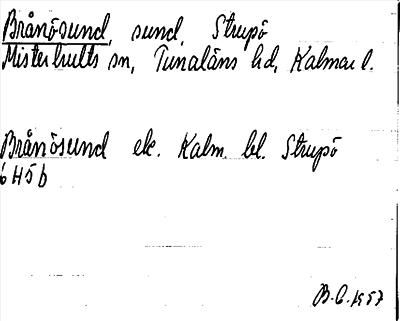 Brånösund, sund, Strupö
Misterhults sn, Tunaläns hd, Kalmar l.
Brånösund ek. Kalm. bl. Strupö
6H5b
B.C. 1957